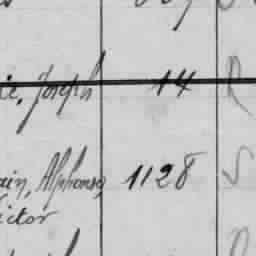 ie, Joseph 14 R
ain, Alphonse, 1128 S
ictor